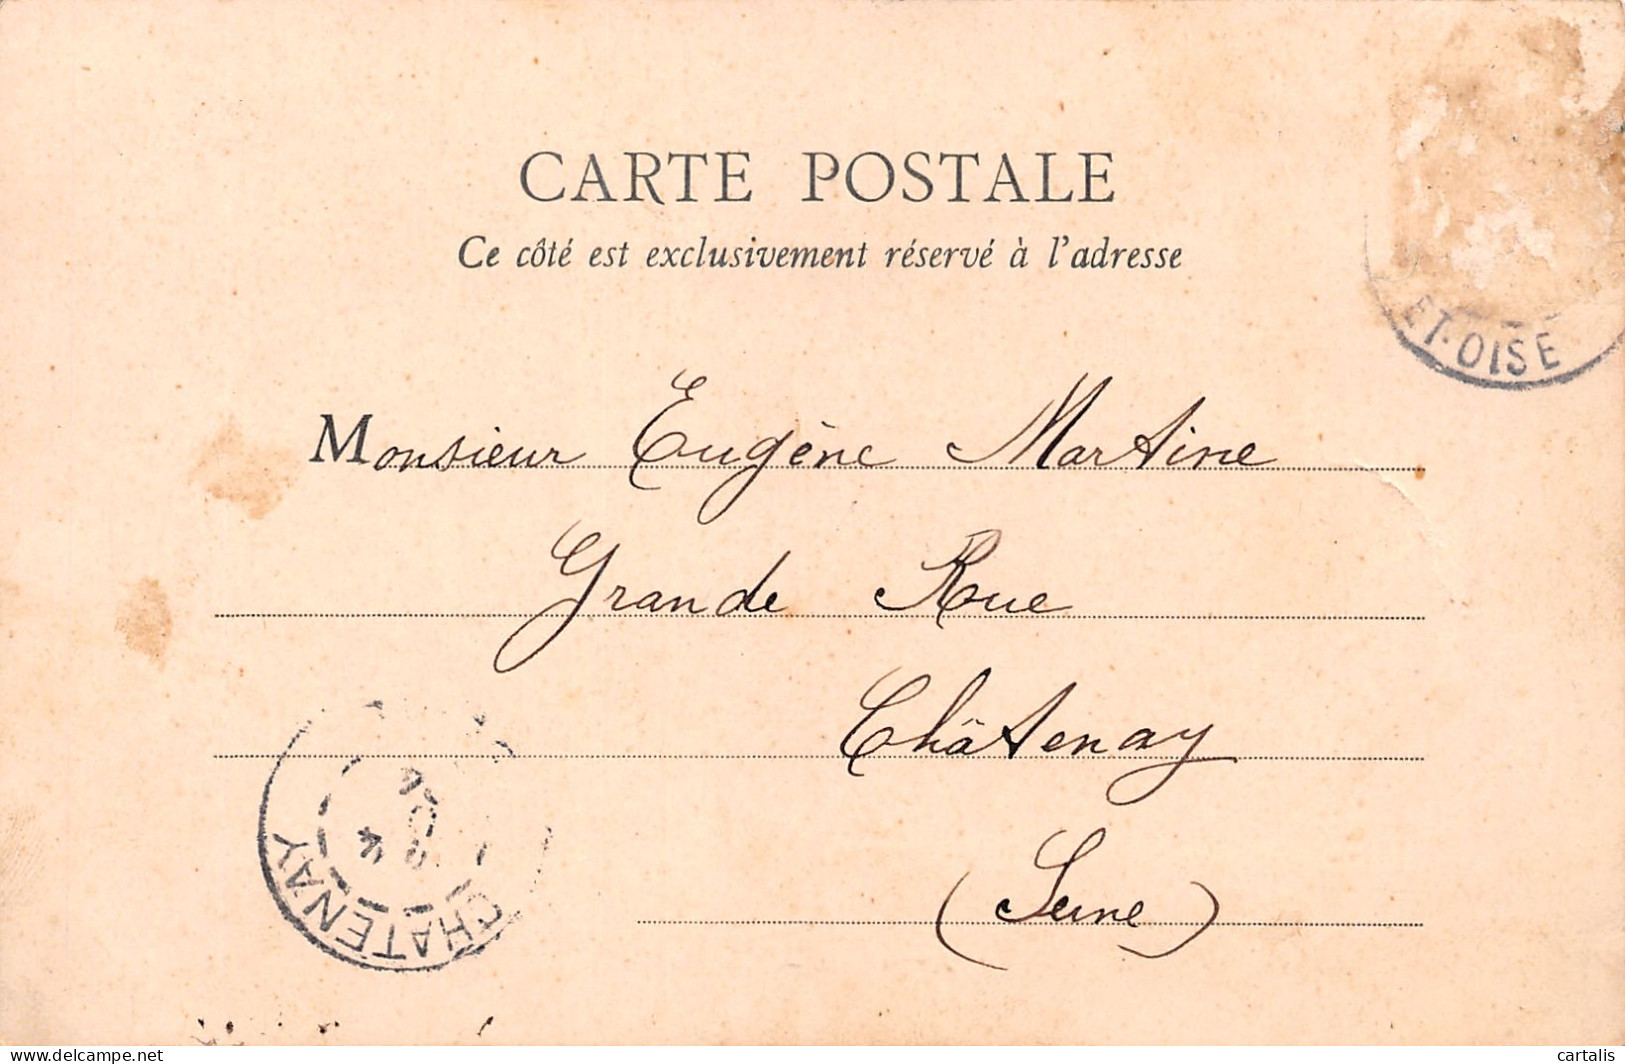 CARTE POSTALE
Ce côté est exclusivement réservé à l'adresse
ET-OISE
Monsieur Eugène Martine
Grande Rue
Châtenay
(Seine)
CHATENAY
04
www.delcampe.net
cartalis